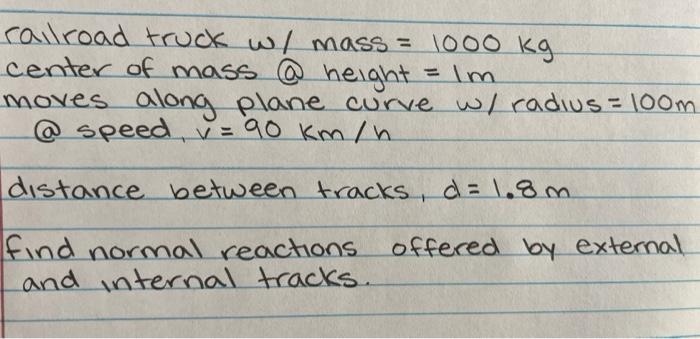 railroad truck w/ mass = 1000 kg
center of mass @ height = 1m
moves along plane curve w/ radius = 100m
@ speed, v = 90 km/h
distance between tracks, d = 1.8m
find normal reactions offered by external
and internal tracks.